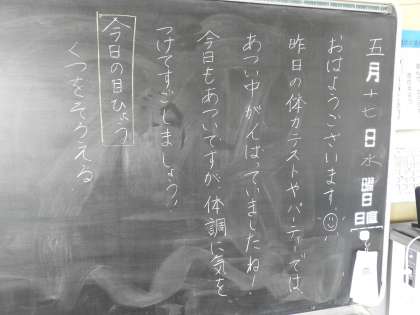 五月十七日水曜日
日直
おはようございます!
昨日の体力テストやパーティーでは、
あつい中がんばっていましたね!
今日もあついですが、体調に気を
つけてすごしましょう!
今日の目ひょう
くつをそろえる。